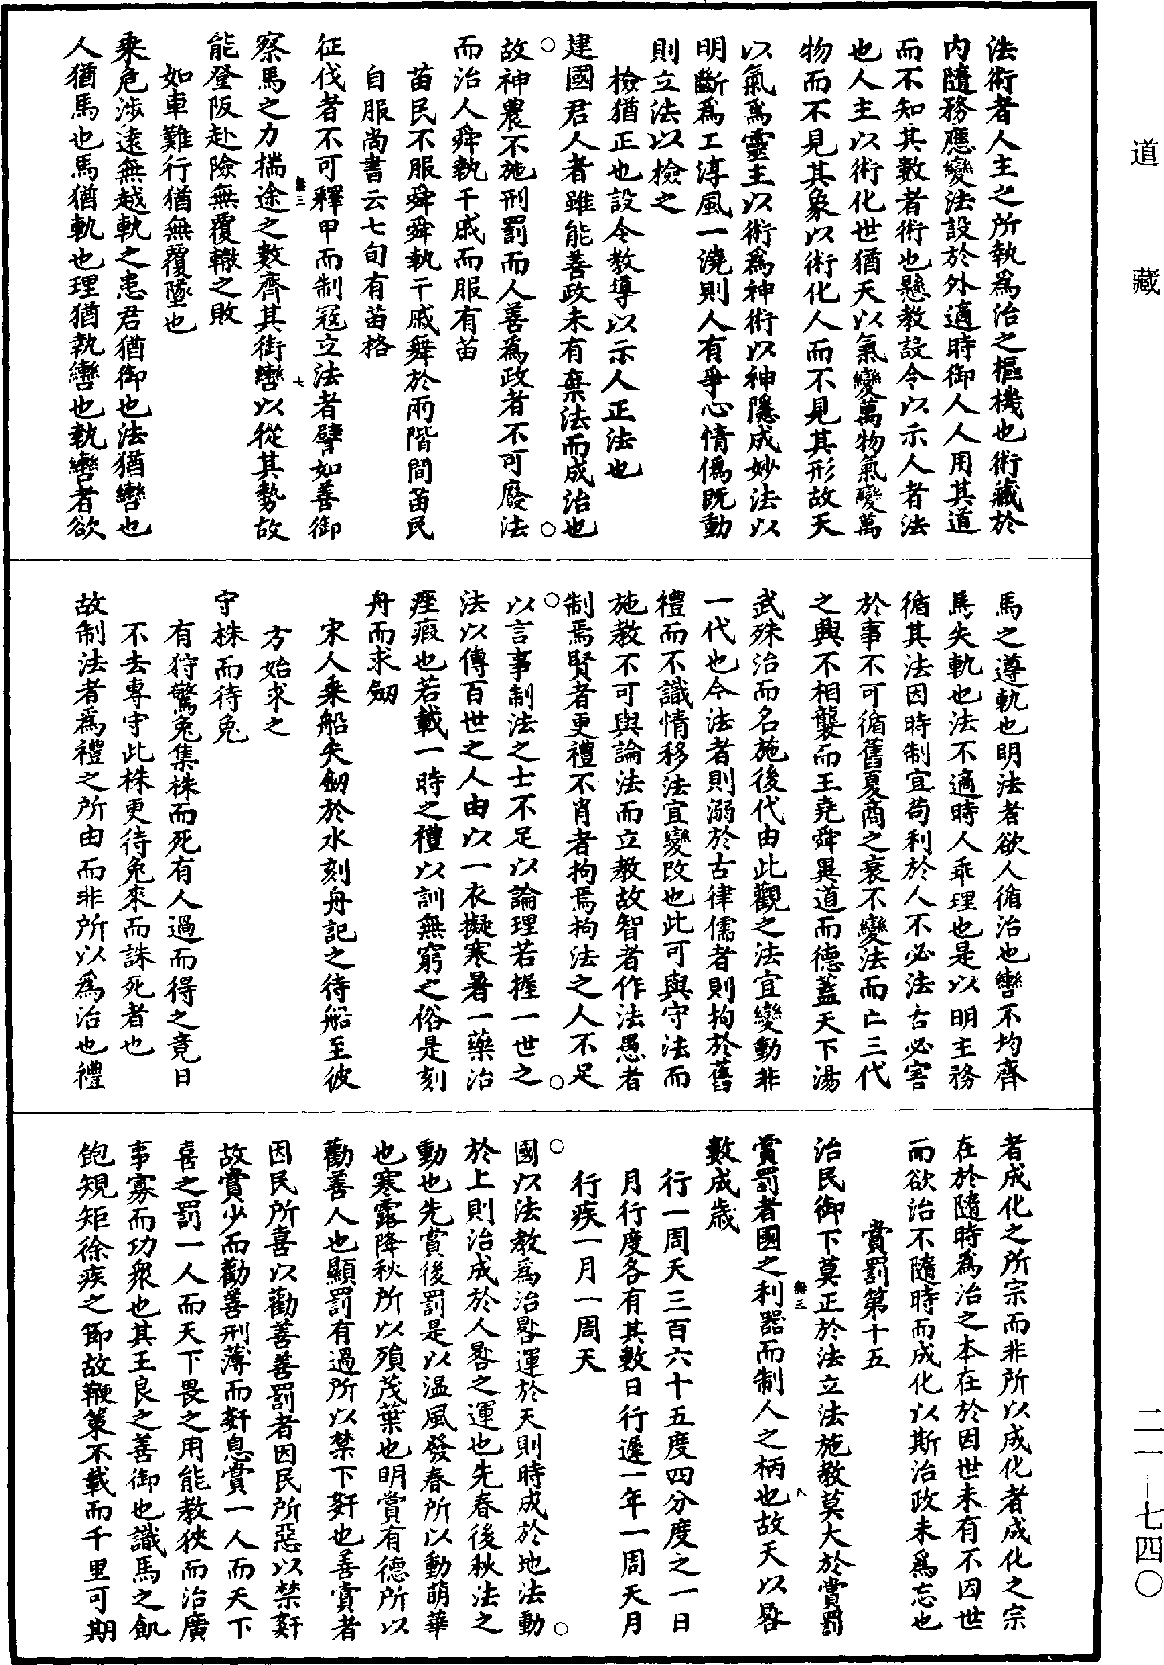 道藏
二一—七四〇
法術者人主之所執為治之樞機也術藏於
內隨務應變法設於外適時御人人用其道
而不知其數者術也懸教設令以示人者法
也人主以術化世猶天以氣變萬物氣變萬
物而不見其象以術化人而不見其形故天
以氣為靈主以術為神術以神隱成妙法以
明斷為工淳風一澆則人有爭心情偽既動
則立法以檢之
檢猶正也設令教導以示人正法也
建國君人者雖能善政未有棄法而成治也
故神農不施刑罰而人善為政者不可廢法
而治人舜執干戚而服有苗
苗民不服舜舜執干戚舞於兩階間苗民
自服尚書云七旬有苗格
征伐者不可釋甲而制寇立法者譬如善御
察馬之力揣途之數齊其銜轡以從其勢故
能登阪赴險無覆轍之敗
如車難行猶無覆墜也
乘危涉遠無越軌之患君猶御也法猶轡也
人猶馬也馬猶軌也理猶執轡也執轡者欲
馬之遵軌也明法者欲人循治也轡不均齊
馬失軌也法不適時人乖理也是以明主務
循其法因時制宜苟利於人不必法古必害
於事不可循舊夏商之衰不變法而亡三代
之興不相襲而王堯舜異道而德蓋天下湯
武殊治而名施後代由此觀之法宜變動非
一代也今法者則溺於古律儒者則拘於舊
禮而不識情移法宜變改也此可與守法而
施教不可與論法而立教故智者作法愚者
制焉賢者更禮不肖者拘焉拘法之人不足
以言事制法之士不足以論理若握一世之
法以傳百世之人由以一衣擬寒暑一藥治
痤瘕也若載一時之禮以訓無窮之俗是刻
舟而求劒
宋人乘船失劒於水刻舟記之待船至彼
方始求之
守株而待兔
有狩驚兔集株而死有人過而得之竟日
不去專守此株更待兔來而誅死者也
故制法者為禮之所由而非所以為治也禮
者成化之所宗而非所以成化者成化之宗
在於隨時為治之本在於因世未有不因世
而欲治不隨時而成化以斯治政未為忘也
賞罰第十五
治民御下莫正於法立法施教莫大於賞罰
賞罰者國之利器而制人之柄也故天以晷
數成歲
行一周天三百六十五度四分度之一日
月行度各有其數日行遲一年一周天月
行疾一月一周天
國以法教為治晷運於天則時成於地法動
於上則治成於人晷之運也先春後秋法之
動也先賞後罰是以溫風發春所以動萌華
也寒露降秋所以殞茂葉也明賞有德所以
勸善人也顯罰有過所以禁下姧也善賞者
因民所喜以勸善善罰者因民所惡以禁姧
故賞少而勸善刑薄而姧息賞一人而天下
喜之罰一人而天下畏之用能教狹而治廣
事寡而功衆也其王良之善御也識馬之飢
飽規矩徐疾之節故鞭策不載而千里可期